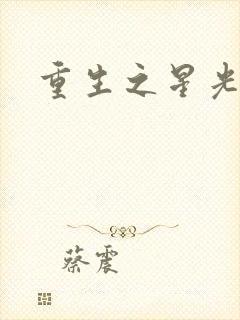 重生之星光
蔡震